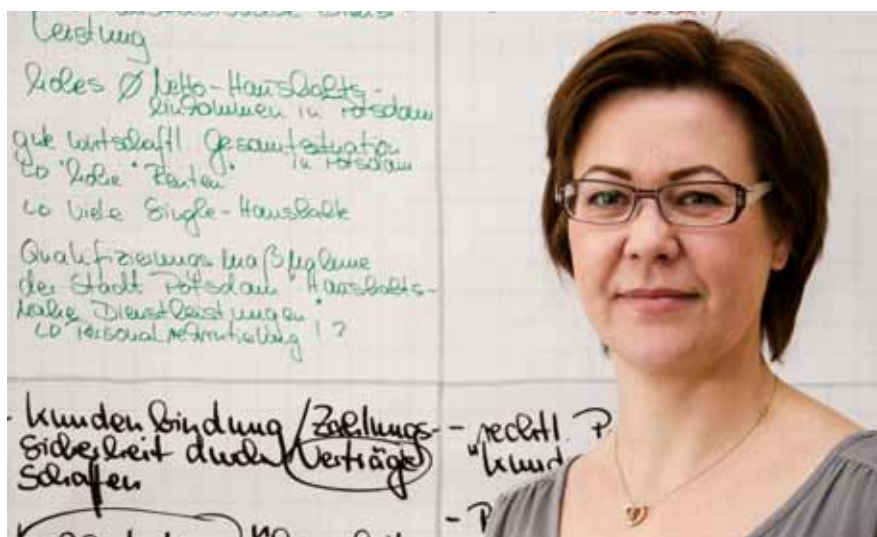 Leistung
hohes Ø Netto-Haushalts-
einkommen in Potsdam
gute wirtschaftl. Gesamtsituation
in Potsdam
↳ "hohe" Renten
↳ viele Single-Haushalte
Qualifizierungsmaßnahme
der Stadt Potsdam "Haushalts-
nahe Dienstleistungen"
↳ Personalrekrutierung!?
- Kundenbindung / Zahlungs-
sicherheit durch Verträge
schaffen
- rechtl. P
"kund
- P